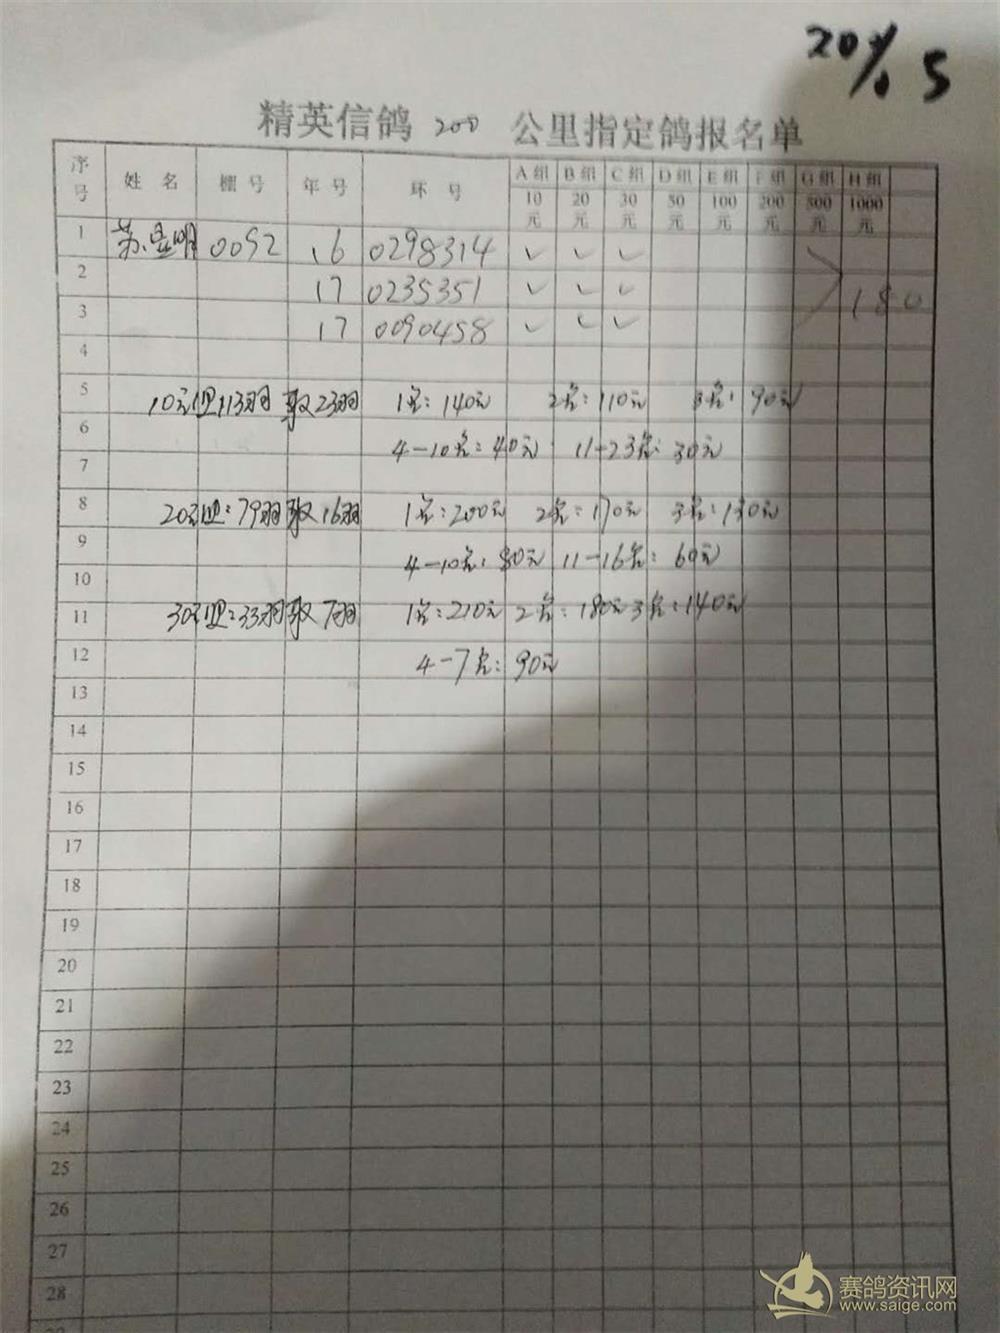 20% 5
精英信鸽 200 公里指定鸽报名单
序号 姓名 棚号 年号 环号 A组 B组 C组 D组 E组 F组 G组 H组
10元 20元 30元 50元 100元 200元 500元 1000元
1 苏显明 0092 16 0298314 ✓ ✓ ✓
2 17 0235351 ✓ ✓ ✓ 180
3 17 0090458 ✓ ✓ ✓
4
5 10元组113羽取23羽 1名:140元 2名:110元 3名:90元
6 4-10名:40元 11-23名:30元
7
8 20元组:79羽取16羽 1名:200元 2名:170元 3名:130元
9 4-10名:80元 11-16名:60元
10
11 30元组:33羽取7羽 1名:210元 2名:180元 3名:140元
12 4-7名:90元
13
14
15
16
17
18
19
20
21
22
23
24
25
26
27
28
赛鸽资讯网
www.saige.com